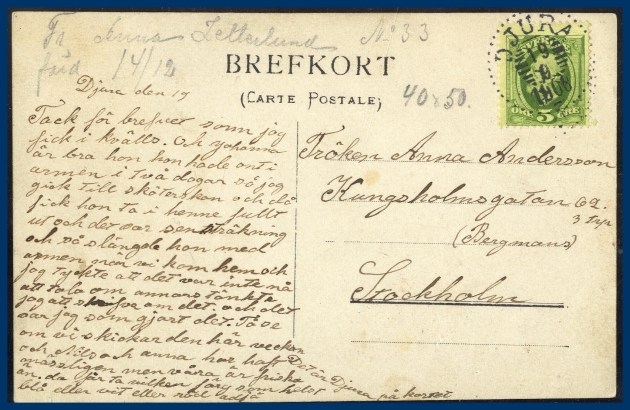 Fr Anna Zetterlund No 33
född 14/12
BREFKORT
(CARTE POSTALE)
40 x 50.
DJURA
5 ÖRE
Djura den 19
Tack för brefvet som jag
fick i kvälls. Och Johanna
är bra hon hon hade ont i
armen i två dagar så jag
gick till sköterskan och då
fick hon ta i henne fullt
ut och det var sensträkning
och så slängde hon med
armen när vi kom hem och
jag tyckte att det var inte nå
att tala om annars tänkte
jag att skrifva om det. och det
har jag som gjort det. Få se
om vi skickar den här veckan
och Nils och anna har haft
mässligen men våra är friska
än. du får ta vilken färg som helst
blå eller vit eller röd adjö
Det är Djura på kortet
Fröken Anna Andersson
Kungsholmsgatan 62.
3 trp
(Bergmans)
Stockholm